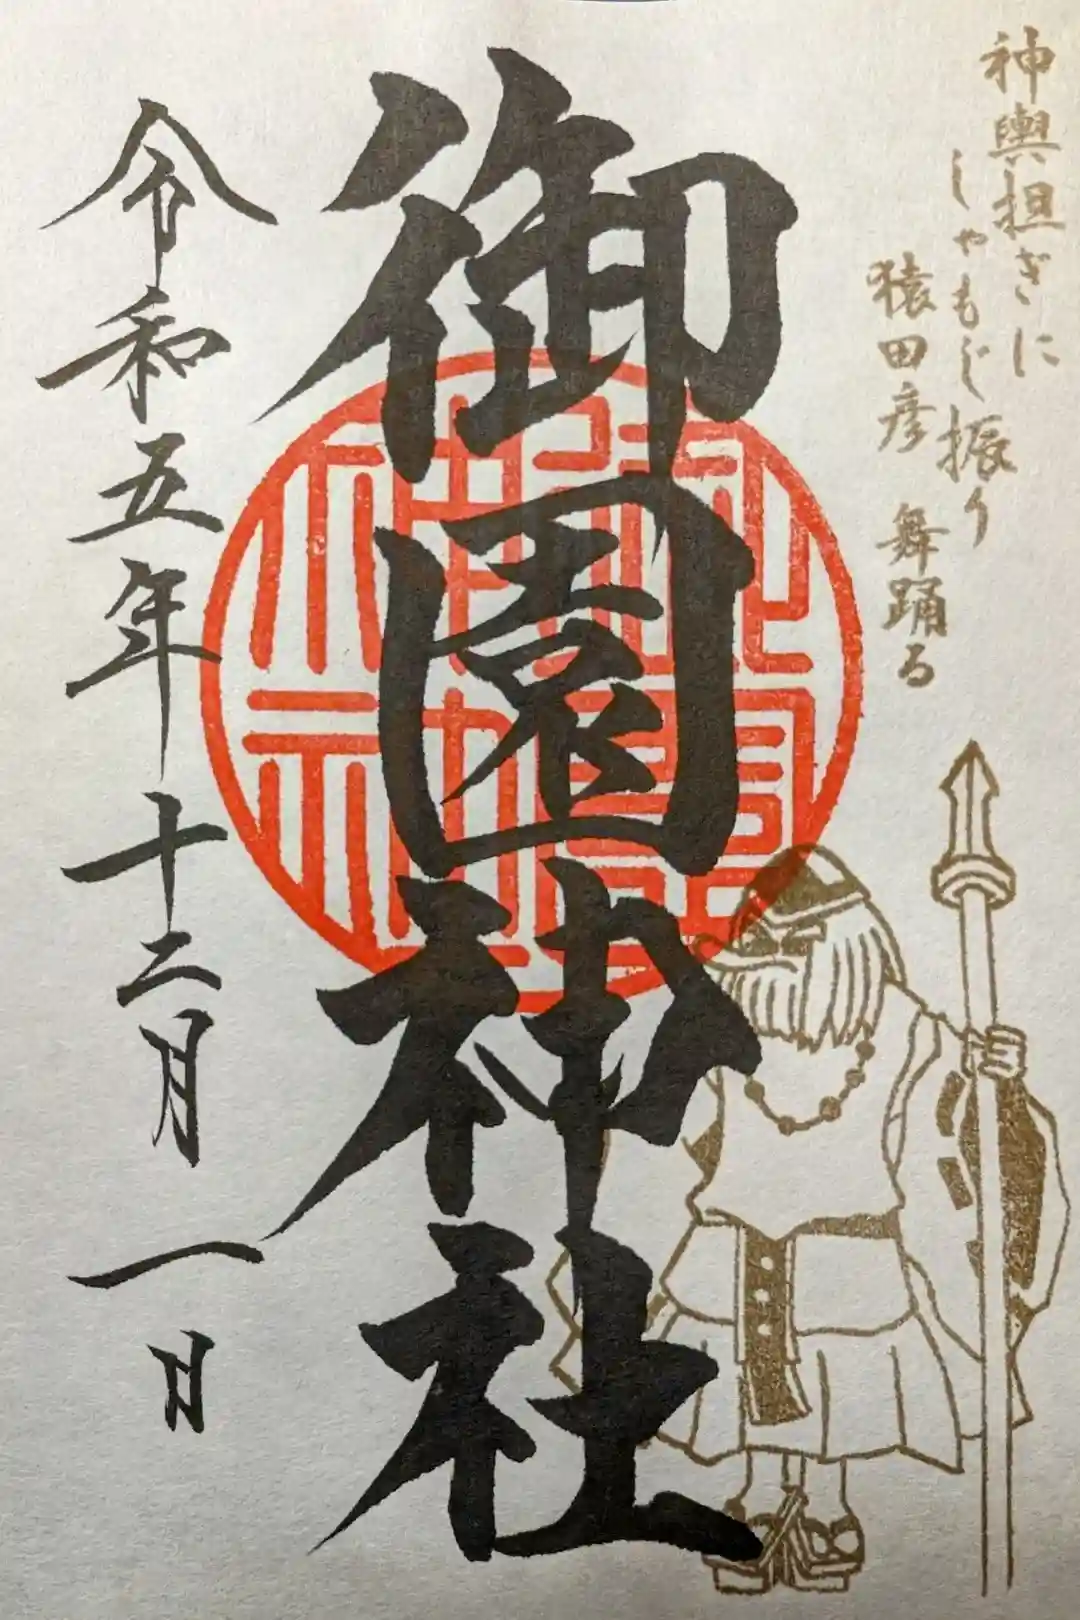 神輿担ぎに
しゃもじ振り
猿田彦 舞踊る
御園神社
令和五年十二月一日